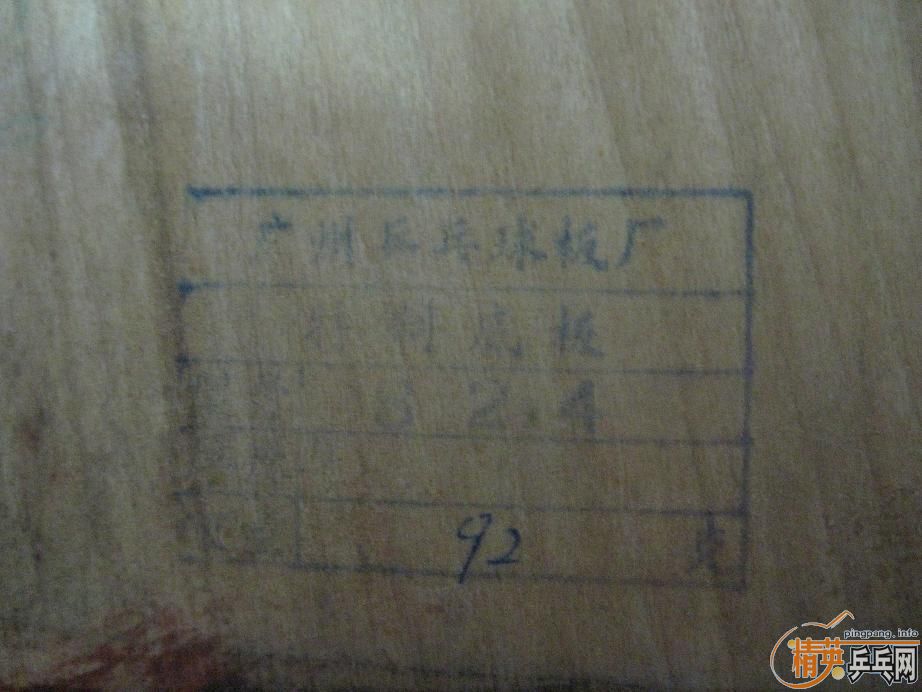 广州乒乓球板厂
特制底板
324
92 克
pingpang.info
精英乒乓网